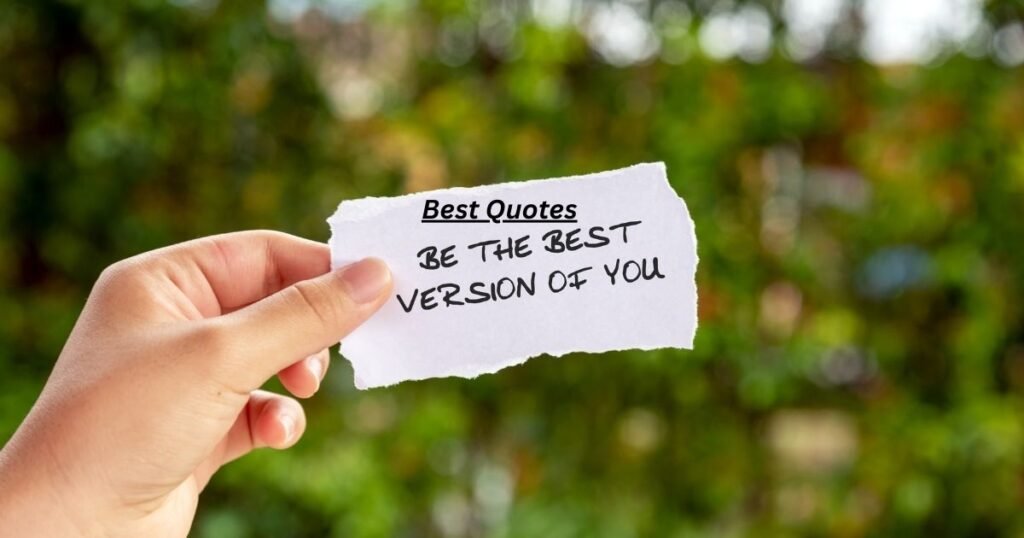 Best Quotes
BE THE BEST
VERSION OF YOU